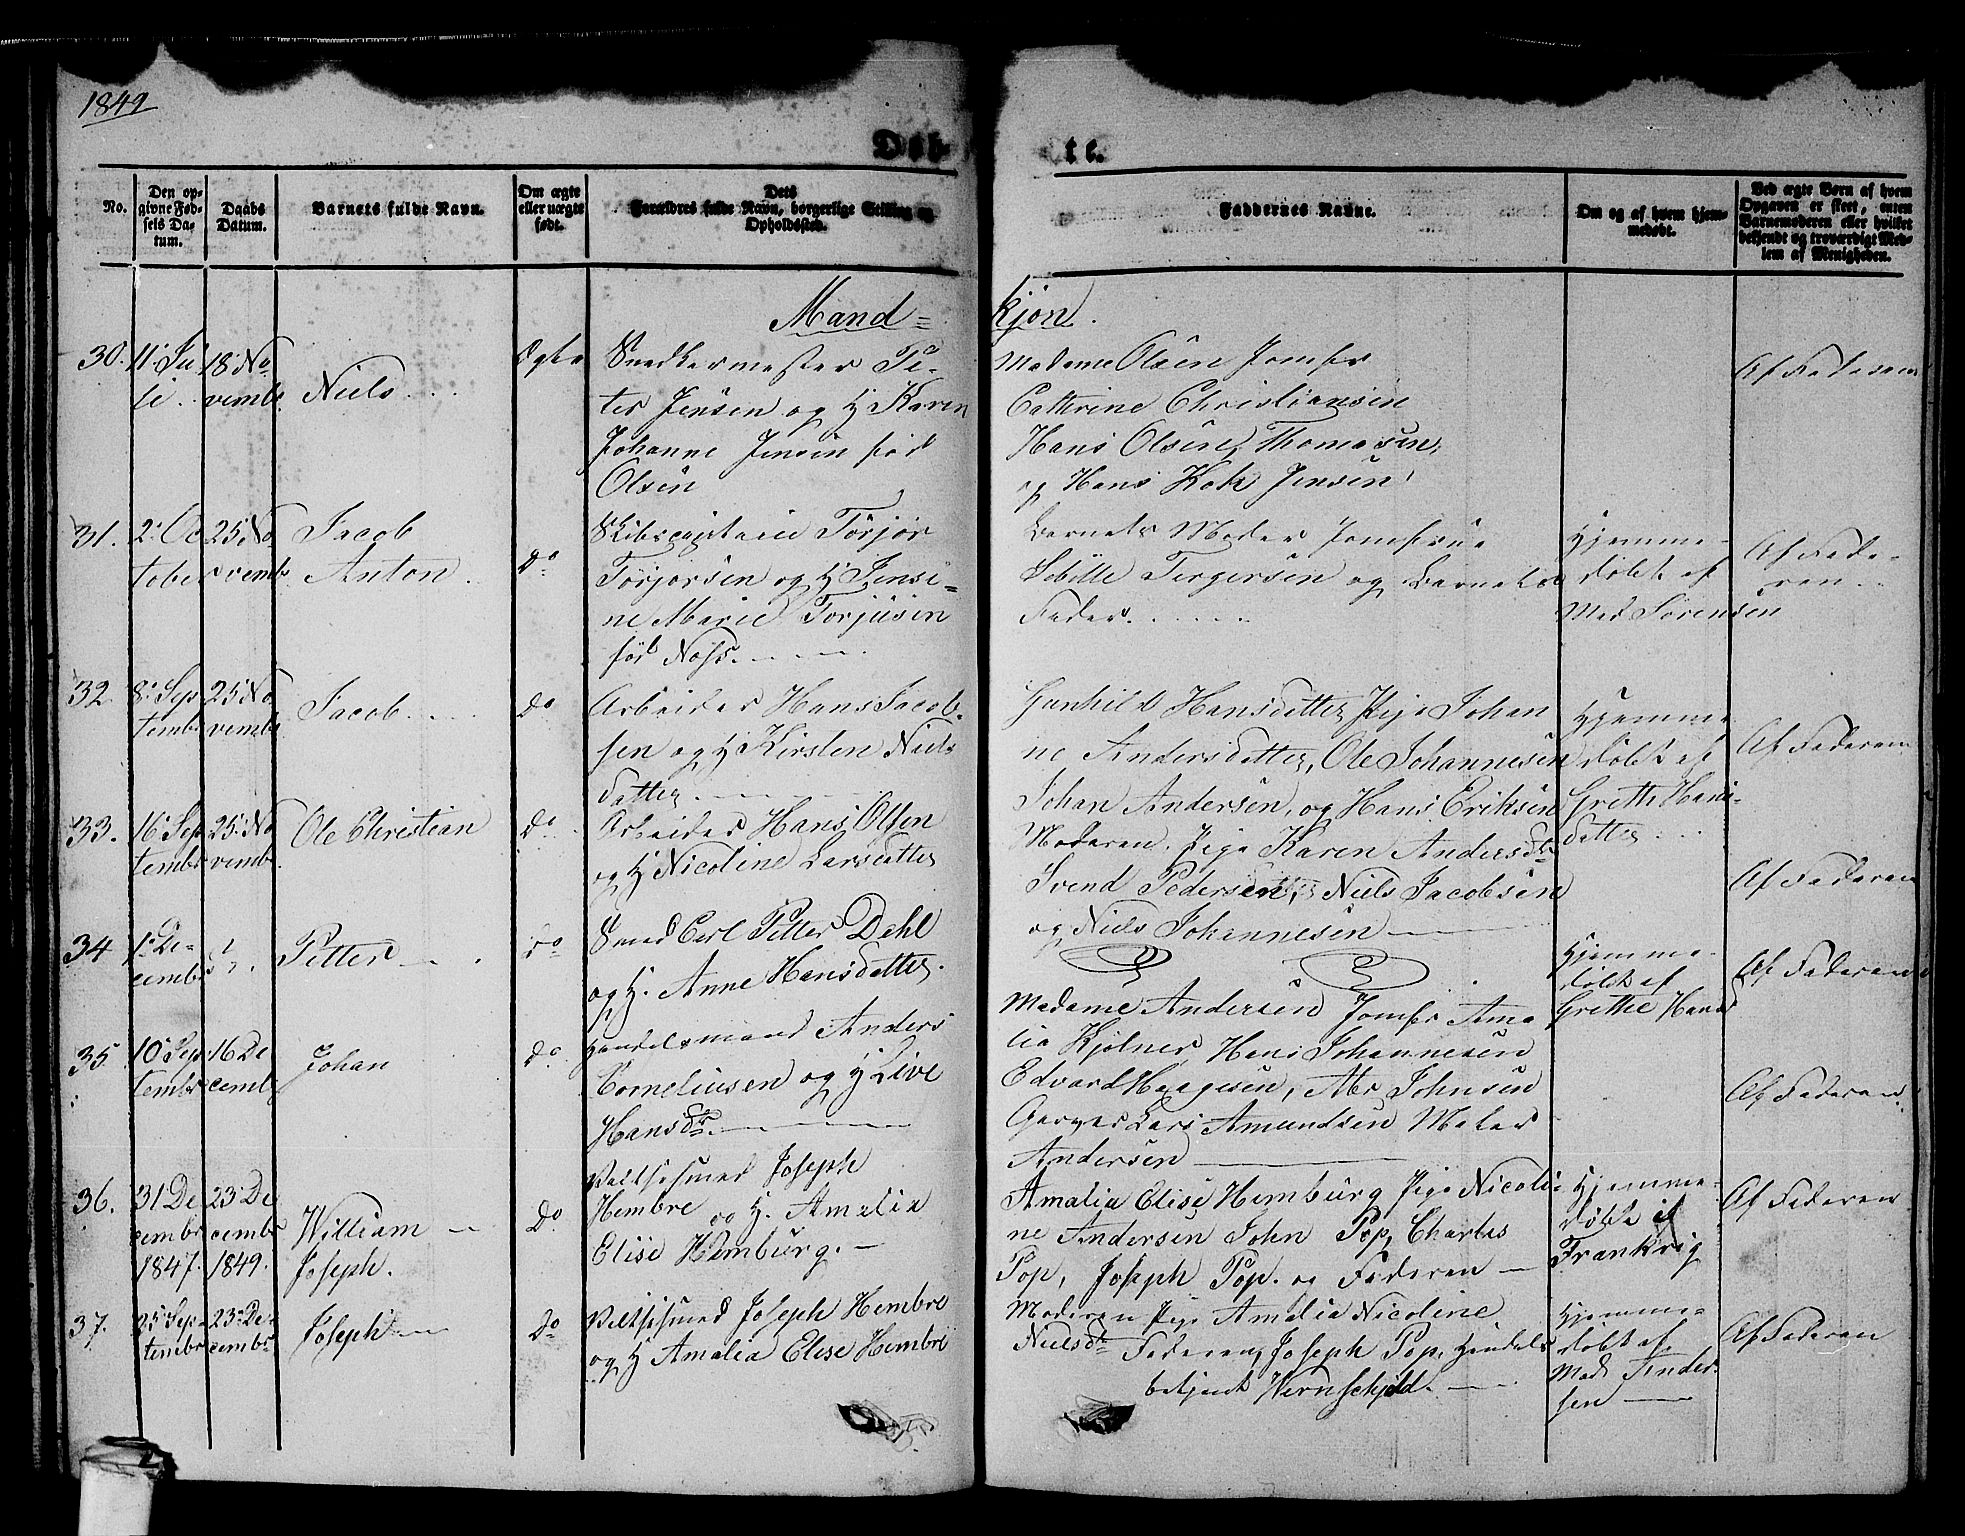 1849
Døb-
te.
No.
Den op-
givne Fød-
sels Da-
tum.
Daabs
Datum.
Barnets fulde Navn.
Om ægte
eller uægte
født.
Dets
Forældres fulde Navn, borgerlige Stilling og
Opholdssted.
Faddernes Navne.
Om og af hvem hjem-
medøbt.
Ved ægte Børn af hvem
Opgaven er skeet, enten
Barnemoderen eller hvilket
bekjendt og troværdigt Med-
lem af Menigheden.
Mand=
kjøn.
30. 11 Ju
li
18 No
vembr
Niels
Ægte
Snedkermester Pe-
ter Jensen og H Karen
Johanne Jensen fød
Olsen
Madame Olsen Jomfr
Cathrine Christiansen
Hans Olsen, Thomasen,
og Hans Kok Jensen
Af Faderen
31. 2 Oc
tober
25 No
vembr
Jacob
Anton
do
Skibscaptain Torjor
Torjorsen og H Jensi-
ne Marie Torjusen
fød
Barnets Moder Jomfrue
Sibille Tergersen og Barnets
Fader
Hjemme-
døbt af
Mad Sørensen
Af Fade-
ren
32 8 Sep
tembr
25 No
vembr
Jacob
do
Arbeider Hans Jacob-
sen og H Kirsten Niels
datter
Gunhild Hansdatter Pige Johan
ne Andersdatter, Ole Johannesen
Johan Andersen, og Hans Eriksen
Hjemme
døbt af
Grethe Hans-
datter
Af Faderen
33. 16 Sep
tembr
25 No
vembr
Ole Christian
do
Arbeider Hans Olsen
og H Nicoline Larsdatter
Moderen. Pige Karen Andersdtr
Svend Pedersen, Niels Jacobsen
og Niels Johannesen
Af Faderen
34 1 De-
cembr
Petter
do
Smed Carl Petter Dahl
og H. Anne Hansdatter.
Hjemme-
døbt af
Grethe Hansd
Af Faderen
35 10 Sep
tembr
16 De
cembr
Johan
do
Handelsmand Anders
Corneliusen og H Live
Hansdtr
Madame Andersen Jomfr Ama
lia Kjølner, Hans Johannesen
Edvard Haagesen, Abr Johnsen
Garver Lars Amundsen Maler
Andersen
Af Faderen
36. 31 De
cembr
1847.
23 De
cembr
1849.
William
Joseph.
do
Valtsesmed Joseph
Hembre og H. Amalia
Elise Hemburg.
Amalia Elise Hemburg Pige Nicoli-
ne Andersen John Pop, Charles
Pop, Joseph Pop. og Faderen
Hjemme-
døbt i
Frankrig
Af Faderen
37. 25 Sep-
tembr
23 De-
cembr
Joseph
do
Valtsesmed Joseph Hembre
og H Amalia Elise Hembre
Moderen Pige Amalia Nicoline
Nielsdtr Faderen, Joseph Pop, Handels
betjent Wernschjold.
Hjemme-
døbt af
Mad Ander-
sen
Af Faderen